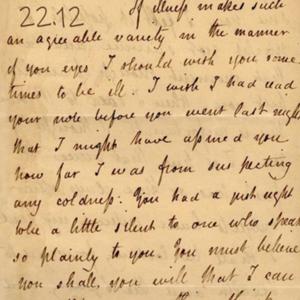 22.12
If illness makes such
an agreeable variety in the manner
of you eyes I should wish you some
times to be ill. I wish I had read
your note before you went last night
that I might have assured you
how far I was from suspecting
any coldness: You had a just right
to be a little silent to one who speaks
so plainly to you. You must believe
you shall, you will that I can